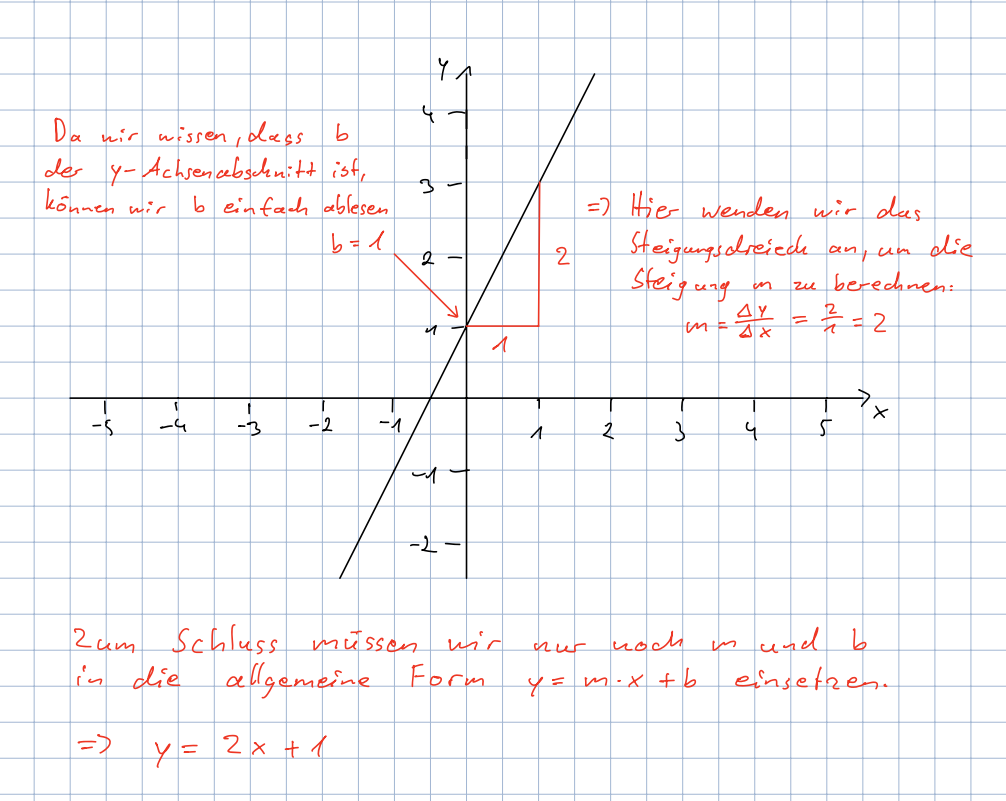 y
4
Da wir wissen, dass b
der y-Achsenabschnitt ist,
können wir b einfach ablesen
b = 1
3
=> Hier wenden wir das
Steigungsdreieck an, um die
Steigung m zu berechnen:
m = Δy/Δx = 2/1 = 2
2
2
1
1
-5 -4 -3 -2 -1 1 2 3 4 5 x
-1
-2
Zum Schluss müssen wir nur noch m und b
in die allgemeine Form y = m·x + b einsetzen.
=> y = 2x + 1